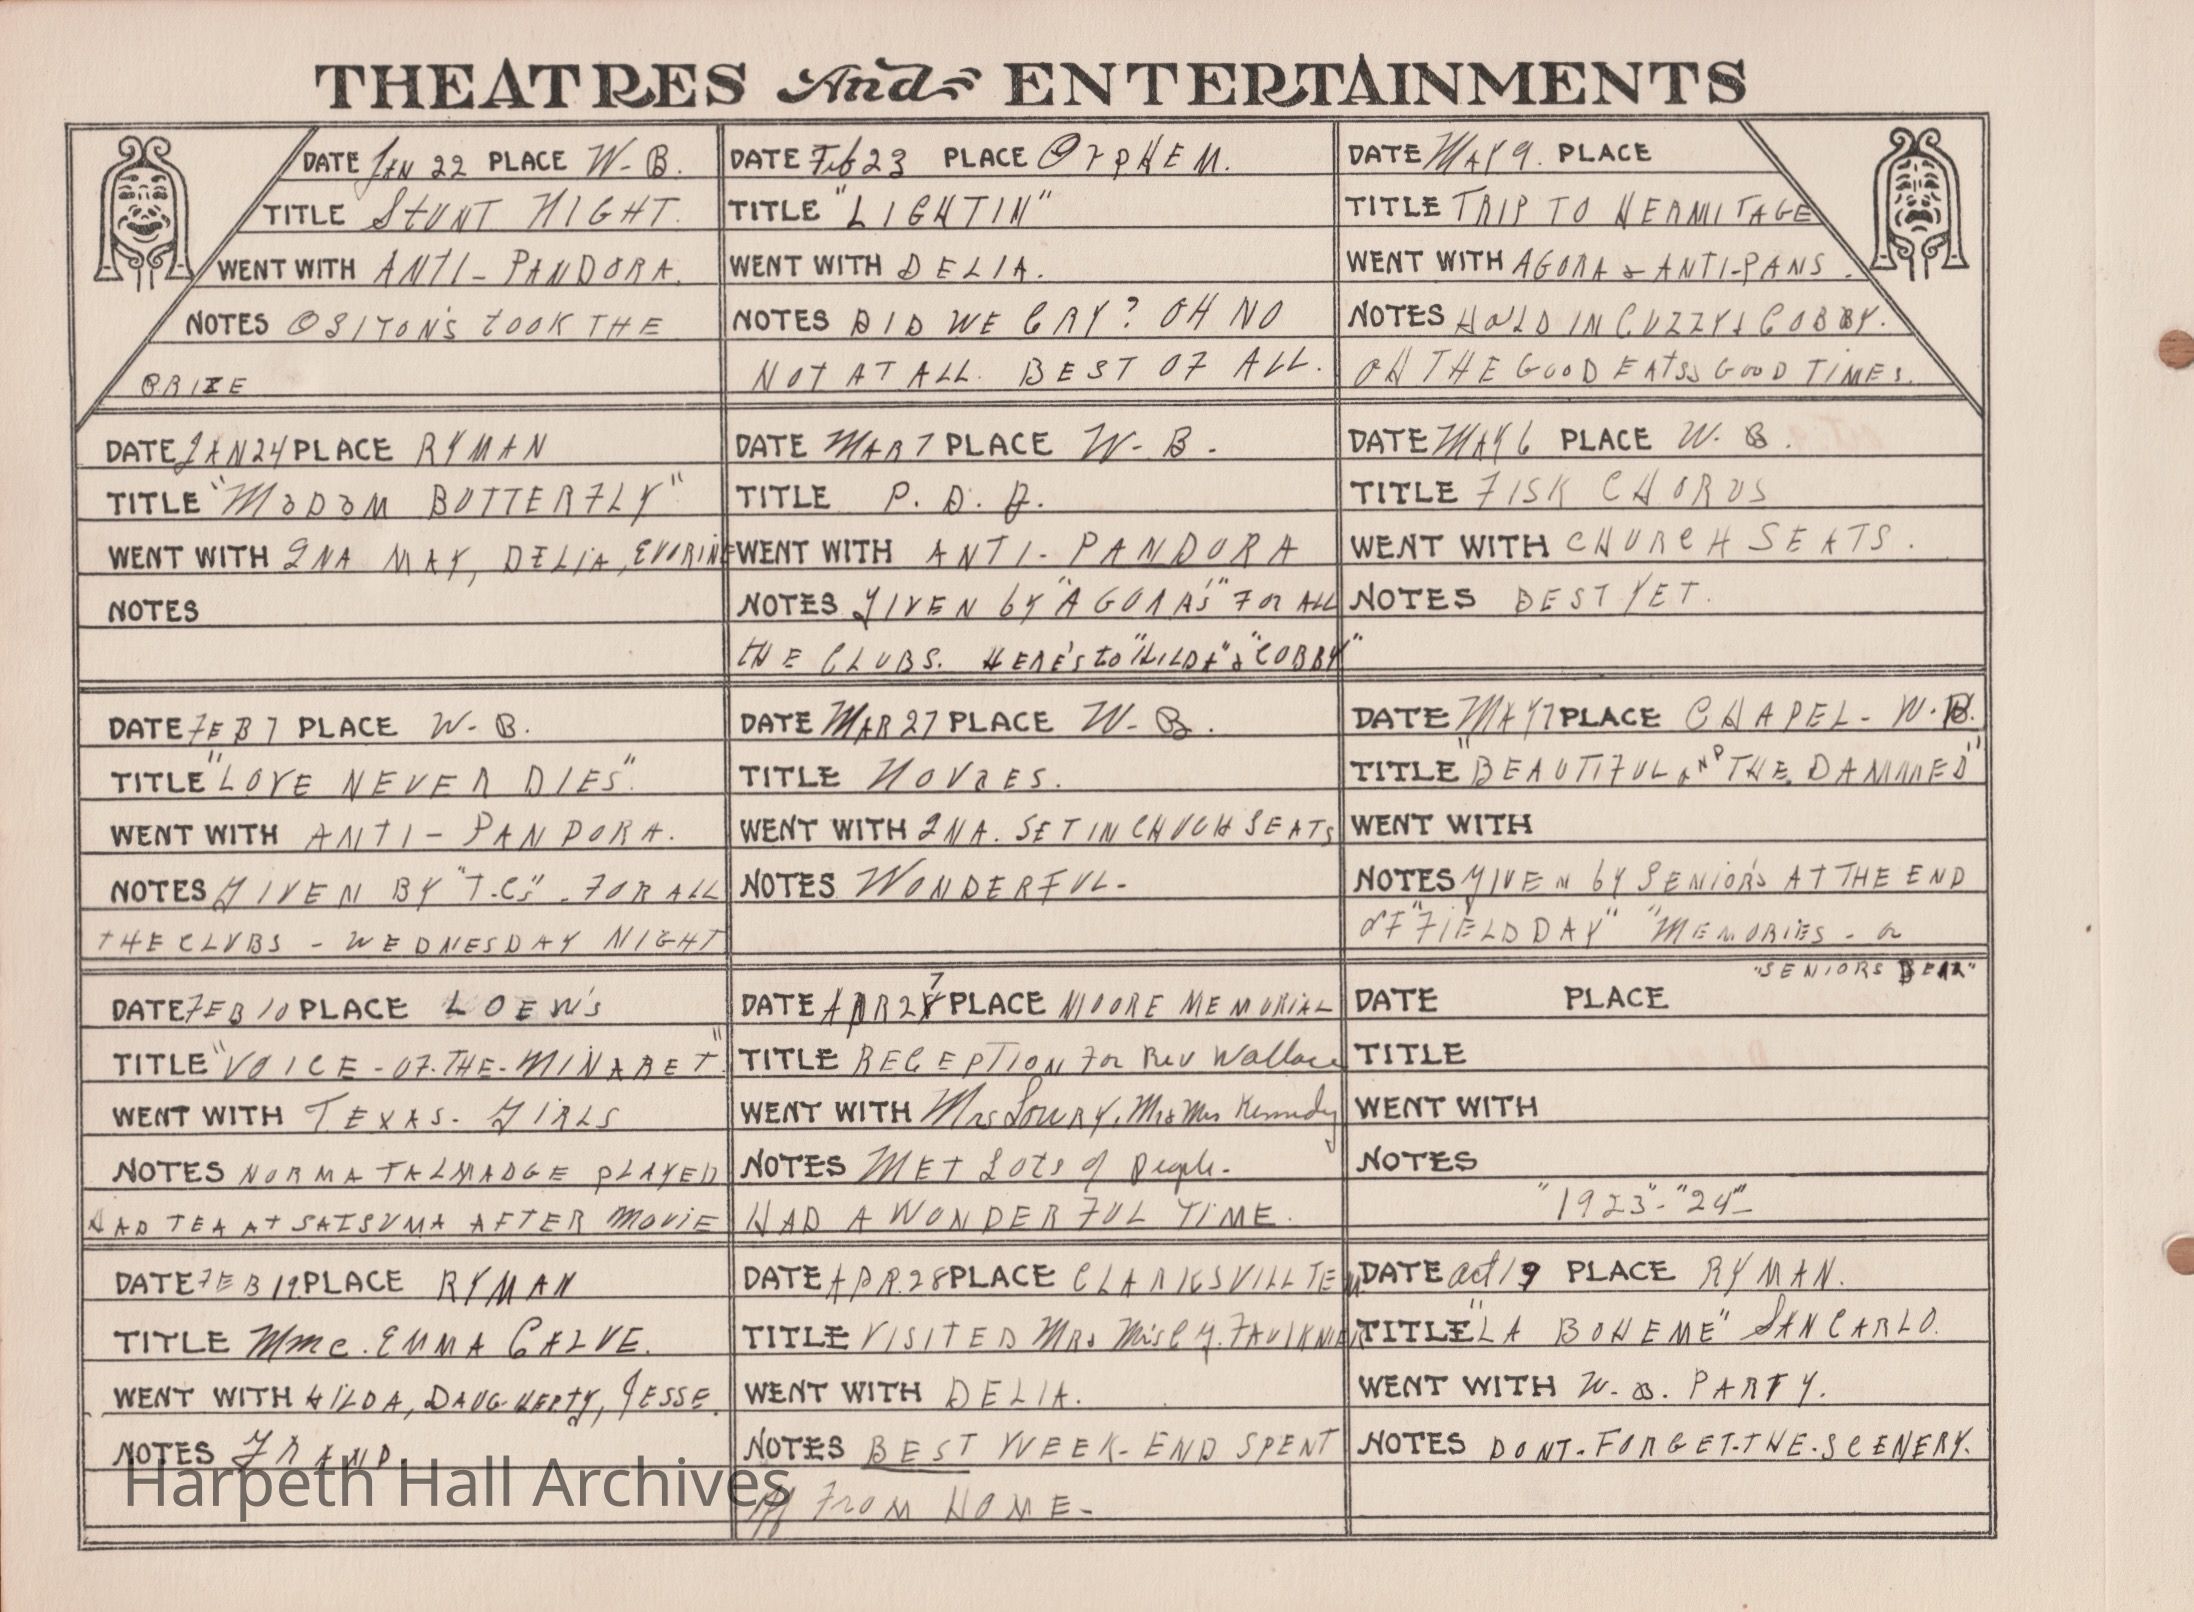 THEATRES And ENTERTAINMENTS
DATE JAN 22 PLACE W-B.
TITLE STUNT NIGHT.
WENT WITH ANTI-PANDORA.
NOTES OSITON'S TOOK THE
PRIZE
DATE JAN 24 PLACE RYMAN
TITLE "MADAM BUTTERFLY"
WENT WITH INA MAY, DELIA, EVORINE
NOTES
DATE FEB 7 PLACE W-B.
TITLE "LOVE NEVER DIES"
WENT WITH ANTI-PANDORA.
NOTES GIVEN BY "T.C's". FOR ALL
THE CLUBS - WEDNESDAY NIGHT
DATE FEB 10 PLACE LOEW'S
TITLE "VOICE-OF-THE-MINARET"
WENT WITH TEXAS-GIRLS
NOTES NORMA TALMADGE PLAYED
HAD TEA AT SATSUMA AFTER MOVIE
DATE FEB 19. PLACE RYMAN
TITLE Mme. EMMA CALVE.
WENT WITH HILDA, DAUGHERTY, JESSE.
NOTES GRAND.
DATE Feb 23 PLACE ORPHEM.
TITLE "LIGHTIN"
WENT WITH DELIA.
NOTES DID WE CRY? OH NO
NOT AT ALL. BEST OF ALL.
DATE MAR 7 PLACE W-B.
TITLE P.D.Q.
WENT WITH ANTI-PANDORA
NOTES GIVEN BY "AGORA'S" FOR ALL
THE CLUBS. HERE'S TO "HILDA" & "COBBY"
DATE MAR 27 PLACE W-B.
TITLE NOVAES.
WENT WITH INA. SET IN CHUCH SEATS
NOTES WONDERFUL-
DATE APR 27 PLACE MOORE MEMORIAL
TITLE RECEPTION For Rev Wallace
WENT WITH Mrs LOWRY, Mr & Mrs Kennedy
NOTES MET LOTS of People.
HAD A WONDERFUL TIME.
DATE APR. 28 PLACE CLARKSVILL TENN.
TITLE VISITED MRS FAULKNER
WENT WITH DELIA.
NOTES BEST WEEK-END SPENT
FROM HOME-
DATE MAY 9. PLACE
TITLE TRIP TO HERMITAGE
WENT WITH AGORA & ANTI-PANS.
NOTES CUZZY & COBBY.
OH THE GOOD EATS & GOOD TIMES.
DATE MAY 6 PLACE W.B.
TITLE FISK CHORUS
WENT WITH CHURCH SEATS.
NOTES BEST YET.
DATE MAY 7 PLACE CHAPEL-W.B.
TITLE "BEAUTIFUL AND THE DAMMED"
WENT WITH
NOTES GIVEN BY SENIORS AT THE END
OF "FIELD DAY" "MEMORIES - a
"SENIORS DEAR"
DATE PLACE
TITLE
WENT WITH
NOTES
"1923"-"24"
DATE Oct 19 PLACE RYMAN.
TITLE "LA BOHEME" SANCARLO.
WENT WITH W.B. PARTY.
NOTES DONT-FORGET-THE-SCENERY.
Harpeth Hall Archives